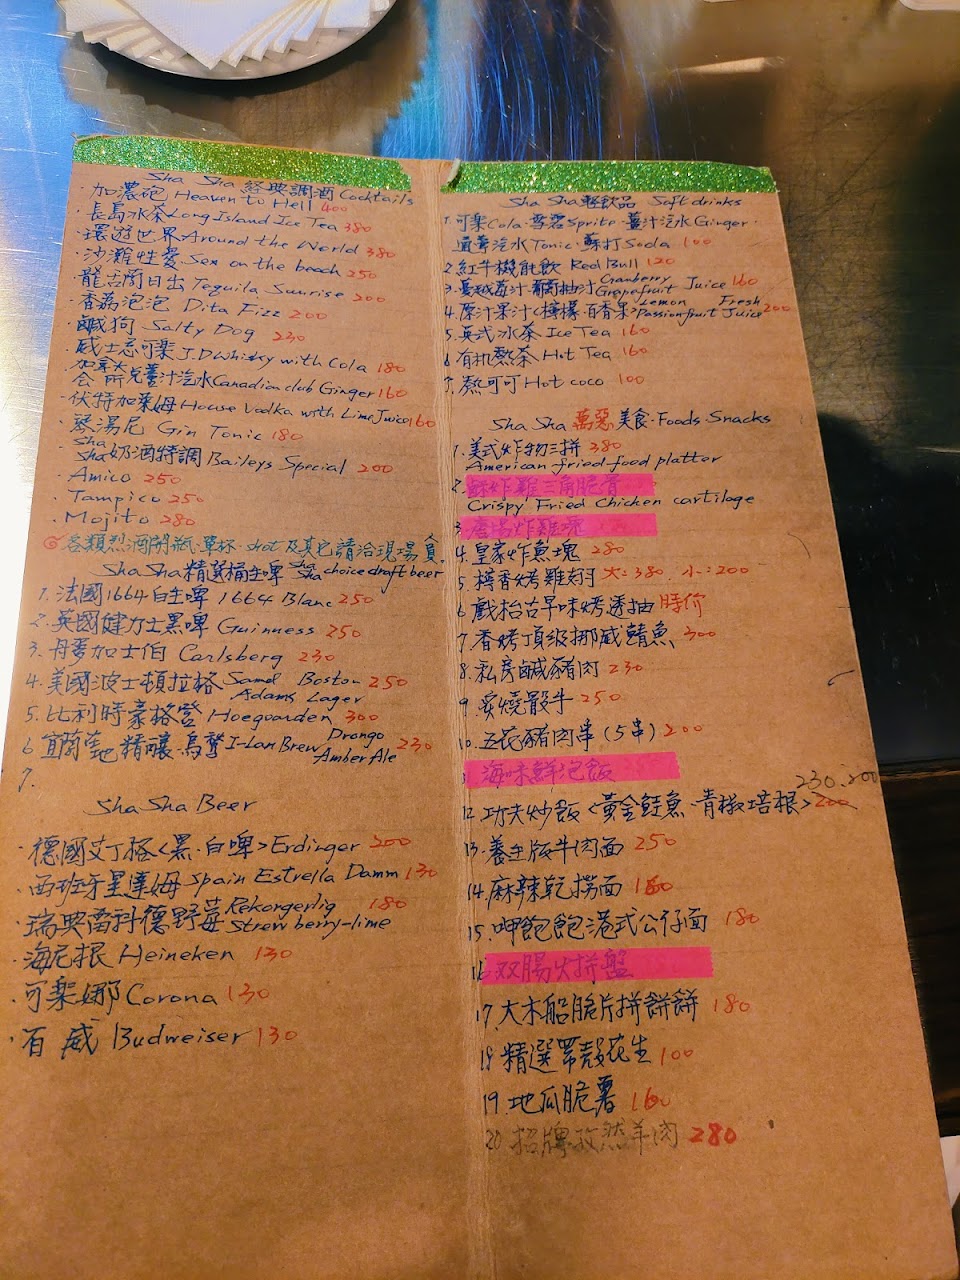 Sha Sha 經典調酒 Cocktails
·加濃砲 Heaven to Hell 400
·長島冰茶 Long Island Ice Tea 380
·環遊世界 Around the World 380
·沙灘性愛 Sex on the beach 250
·龍舌蘭日出 Tequila Sunrise 200
·香荔泡泡 Dita Fizz 200
·鹹狗 Salty Dog 230
·威士忌可樂 J.D Whisky with Cola 180
·加拿大會所兌薑汁汽水 Canadian club Ginger 160
·伏特加萊姆 House Vodka with Lime Juice 160
·琴湯尼 Gin Tonic 180
·Sha Sha 奶酒特調 Baileys Special 200
·Amico 250
·Tampico 250
·Mojito 280
各類烈酒開瓶.單杯.shot 及其它請洽現場員
Sha Sha 精選桶生啤 Sha Sha choice draft beer
1. 法國1664白生啤 1664 Blanc 250
2. 英國健力士黑啤 Guinness 250
3. 丹麥加士伯 Carlsberg 230
4. 美國波士頓拉格 Samel Boston Adams Lager 250
5. 比利時豪格登 Hoegaarden 300
6 宜蘭 精釀·烏 I-Lan Brew Drongo Amber Ale 230
7.
Sha Sha Beer
·德國艾丁格<黑.白啤> Erdinger 200
·西班牙星達姆 Spain Estrella Damm 130
·瑞典雷科德野莓 Rekorgerlig Strewberry-lime 180
·海尼根 Heineken 130
·可樂娜 Corona 130
·百威 Budweiser 130
Sha Sha 輕飲品 Soft drinks
1. 可樂 Cola·雪碧 Sprite·薑汁汽水 Ginger·
通寧汽水 Tonic·蘇打 Soda 100
2. 紅牛機能飲 Red Bull 120
3. 蔓越莓汁·葡萄柚汁 Cranberry Grapefruit Juice 160
4. 原汁果汁<檸檬·百香果> Lemon Passionfruit Fresh Juice 200
5. 英式冰茶 Ice Tea 160
6 有机熱茶 Hot Tea 160
7. 熱可可 Hot coco 100
Sha Sha 萬惡美食·Foods Snacks
1. 美式炸物三拼 380
American fried food platter
2. 酥炸雞三角脆骨
Crispy Fried Chicken cartilage
3. 唐揚炸雞塊
4. 皇家炸魚塊 280
5. 樽香烤雞翅 大:380. 小:200
6 戲枱古早味烤透抽 時价
7 香烤頂級挪威鯖魚 300
8. 私房鹹豬肉 230
9. 炙燒骰牛 250
10. 五花豬肉串 (5串) 200
11 海味鮮泡飯
12. 功夫炒飯<黃金鮭魚·青椒培根> 200 230.200
13. 養生版牛肉面 250
14. 麻辣乾撈面 160
15. 呷飽飽港式公仔面 180
16 双腸火拼盤
17. 大木船脆片拼餅餅 180
18 精選帶殼花生 100
19 地瓜脆薯 160
20 招牌孜然羊肉 280